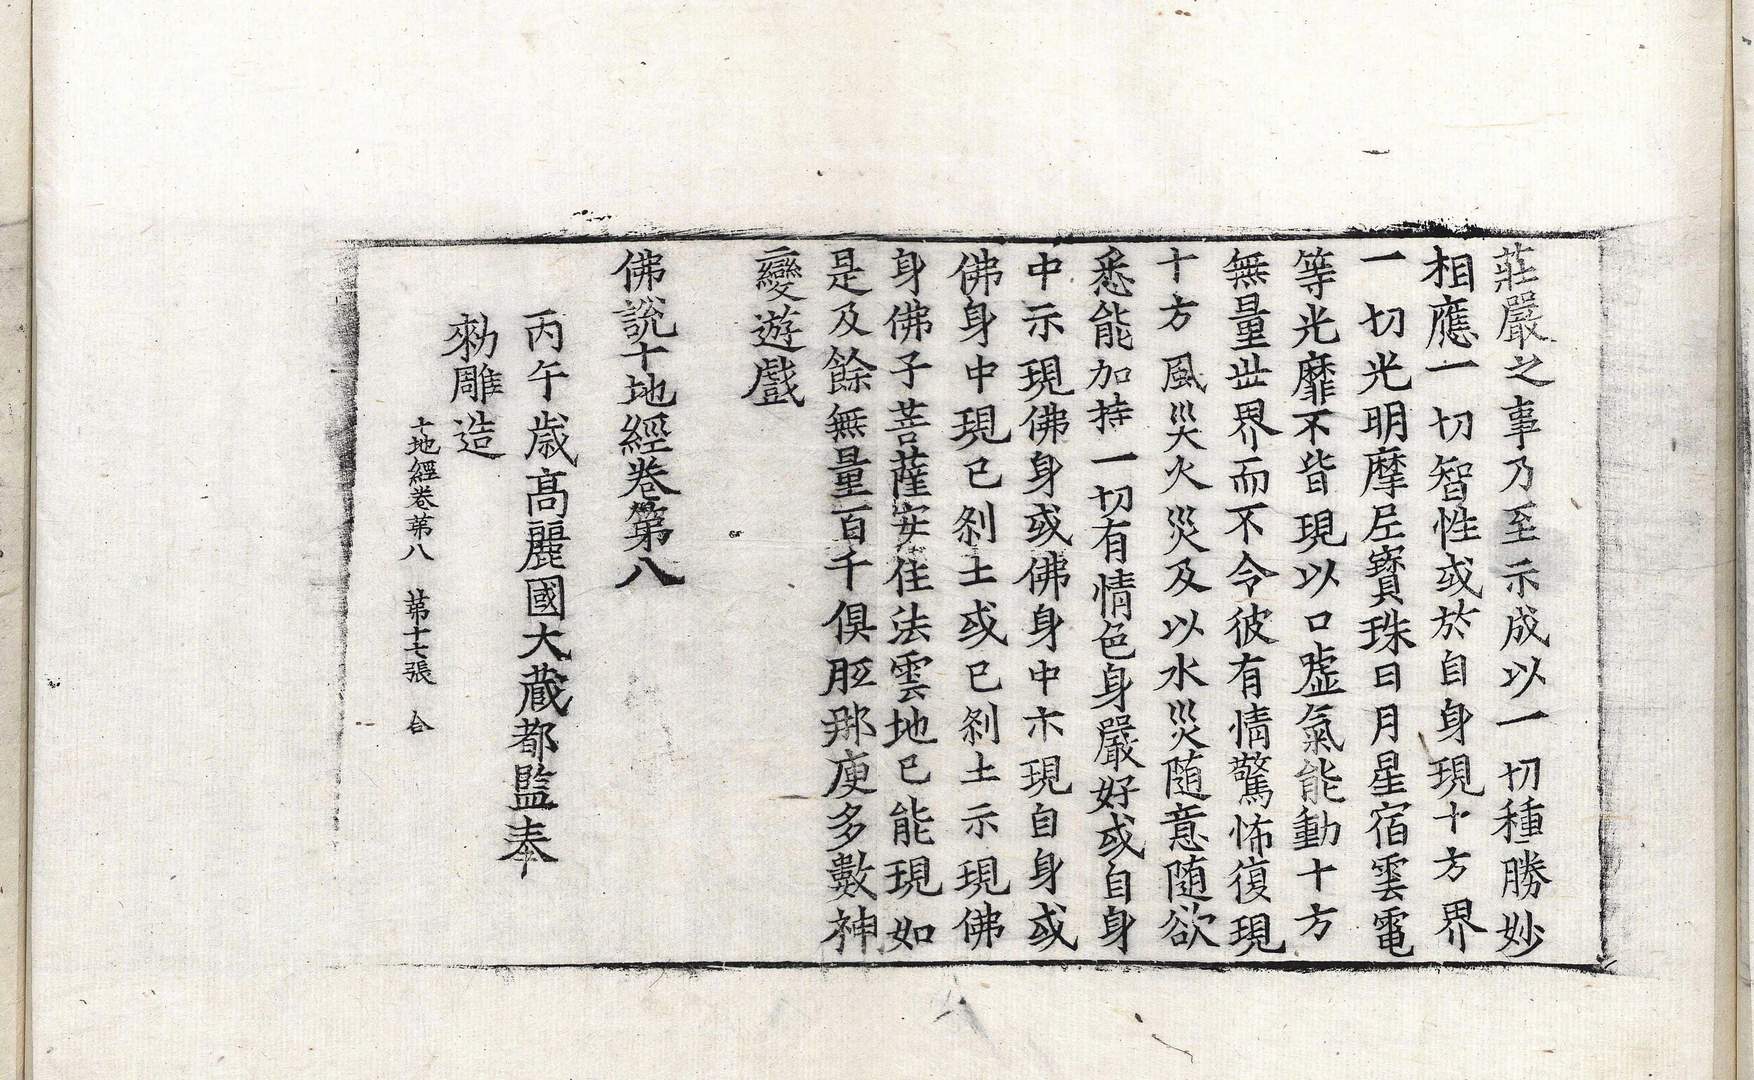 莊嚴之事乃至示成以一切種勝妙
相應一切智性或於自身現十方界
一切光明摩尼寶珠日月星宿雲電
等光靡不皆現以口噓氣能動十方
無量世界而不令彼有情驚怖復現
十方風災火災及以水災随意随欲
悉能加持一切有情色身嚴好或自身
中示現佛身或佛身中示現自身或
佛身中現已刹土或已刹土示現佛
身佛子菩薩安住法雲地已能現如
是及餘無量百千俱胝那庾多數神
變遊戲
佛說十地經卷第八
丙午歲高麗國大藏都監奉
勑雕造
十地經卷第八 第十七張 合